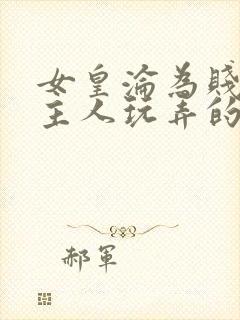 女皇淪為賤
主人玩弄的
郝軍